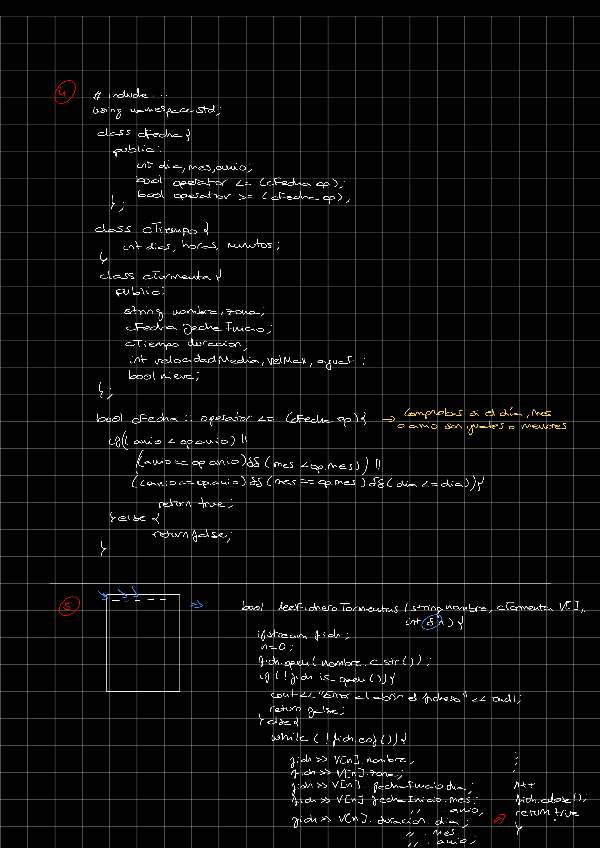 4
# include ...
using namespace std;
class cFecha {
public:
int dia, mes, anio;
bool operator <= (cFecha op);
bool operator >= (cFecha op);
};
class cTiempo {
int dias, horas, minutos;
}
class cTormenta {
public:
string nombre, zona;
cFecha fechaInicio;
cTiempo duracion;
int velocidadMedia, velMax, aguaT ;
bool nieve;
};
bool cFecha :: operator <= (cFecha op) { → Comprobar si el día, mes
o anio son iguales o menores
if( (anio < op.anio) ||
((anio == op.anio) && (mes < op.mes) ) ||
((anio == op.anio) && (mes == op.mes) && (dia <= dia) ){
return true;
} else {
return false;
}
5
⇒ bool leerFicheroTormentas (string nombre, cTormenta V[],
int &n) {
ifstream fich;
n=0;
fich.open( nombre.c_str());
if ( !fich is_open ()){
cout << "Error al abrir el fichero" << endl;
return false;
} else {
while ( !fich.eof()){
fich >> V[n].nombre;
fich >> V[n].zona;
fich >> V[n]. fechaInicio.dia;
fich >> V[n] fechaInicio.mes;
" . anio;
fich >> V[n]. duracion. dia;
" . mes
" . anio;
;
;
n++
fich.close();
return true
}